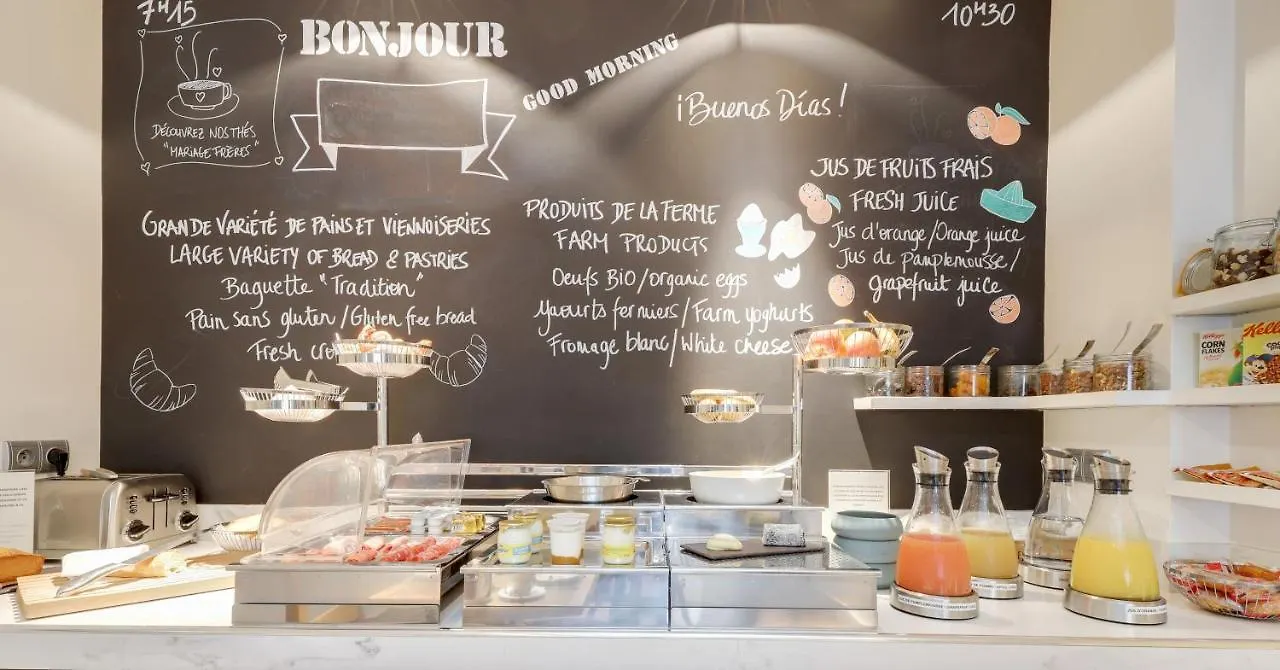 7H15
10H30
BONJOUR
GOOD MORNING
¡Buenos Días!
DÉCOUVREZ NOS THÉS
"MARIAGE FRÈRES"
GRANDE VARIÉTÉ DE PAINS ET VIENNOISERIES
LARGE VARIETY OF BREAD & PASTRIES
Baguette "Tradition"
Pain sans gluten / Gluten free bread
Fresh
PRODUITS DE LA FERME
FARM PRODUCTS
Oeufs BIO/organic eggs
Yaourts fermiers / Farm yoghurts
Fromage blanc/White cheese
JUS DE FRUITS FRAIS
FRESH JUICE
Jus d'orange/Orange juice
Jus de pamplemousse/
grapefruit juice
CORN
FLAKES